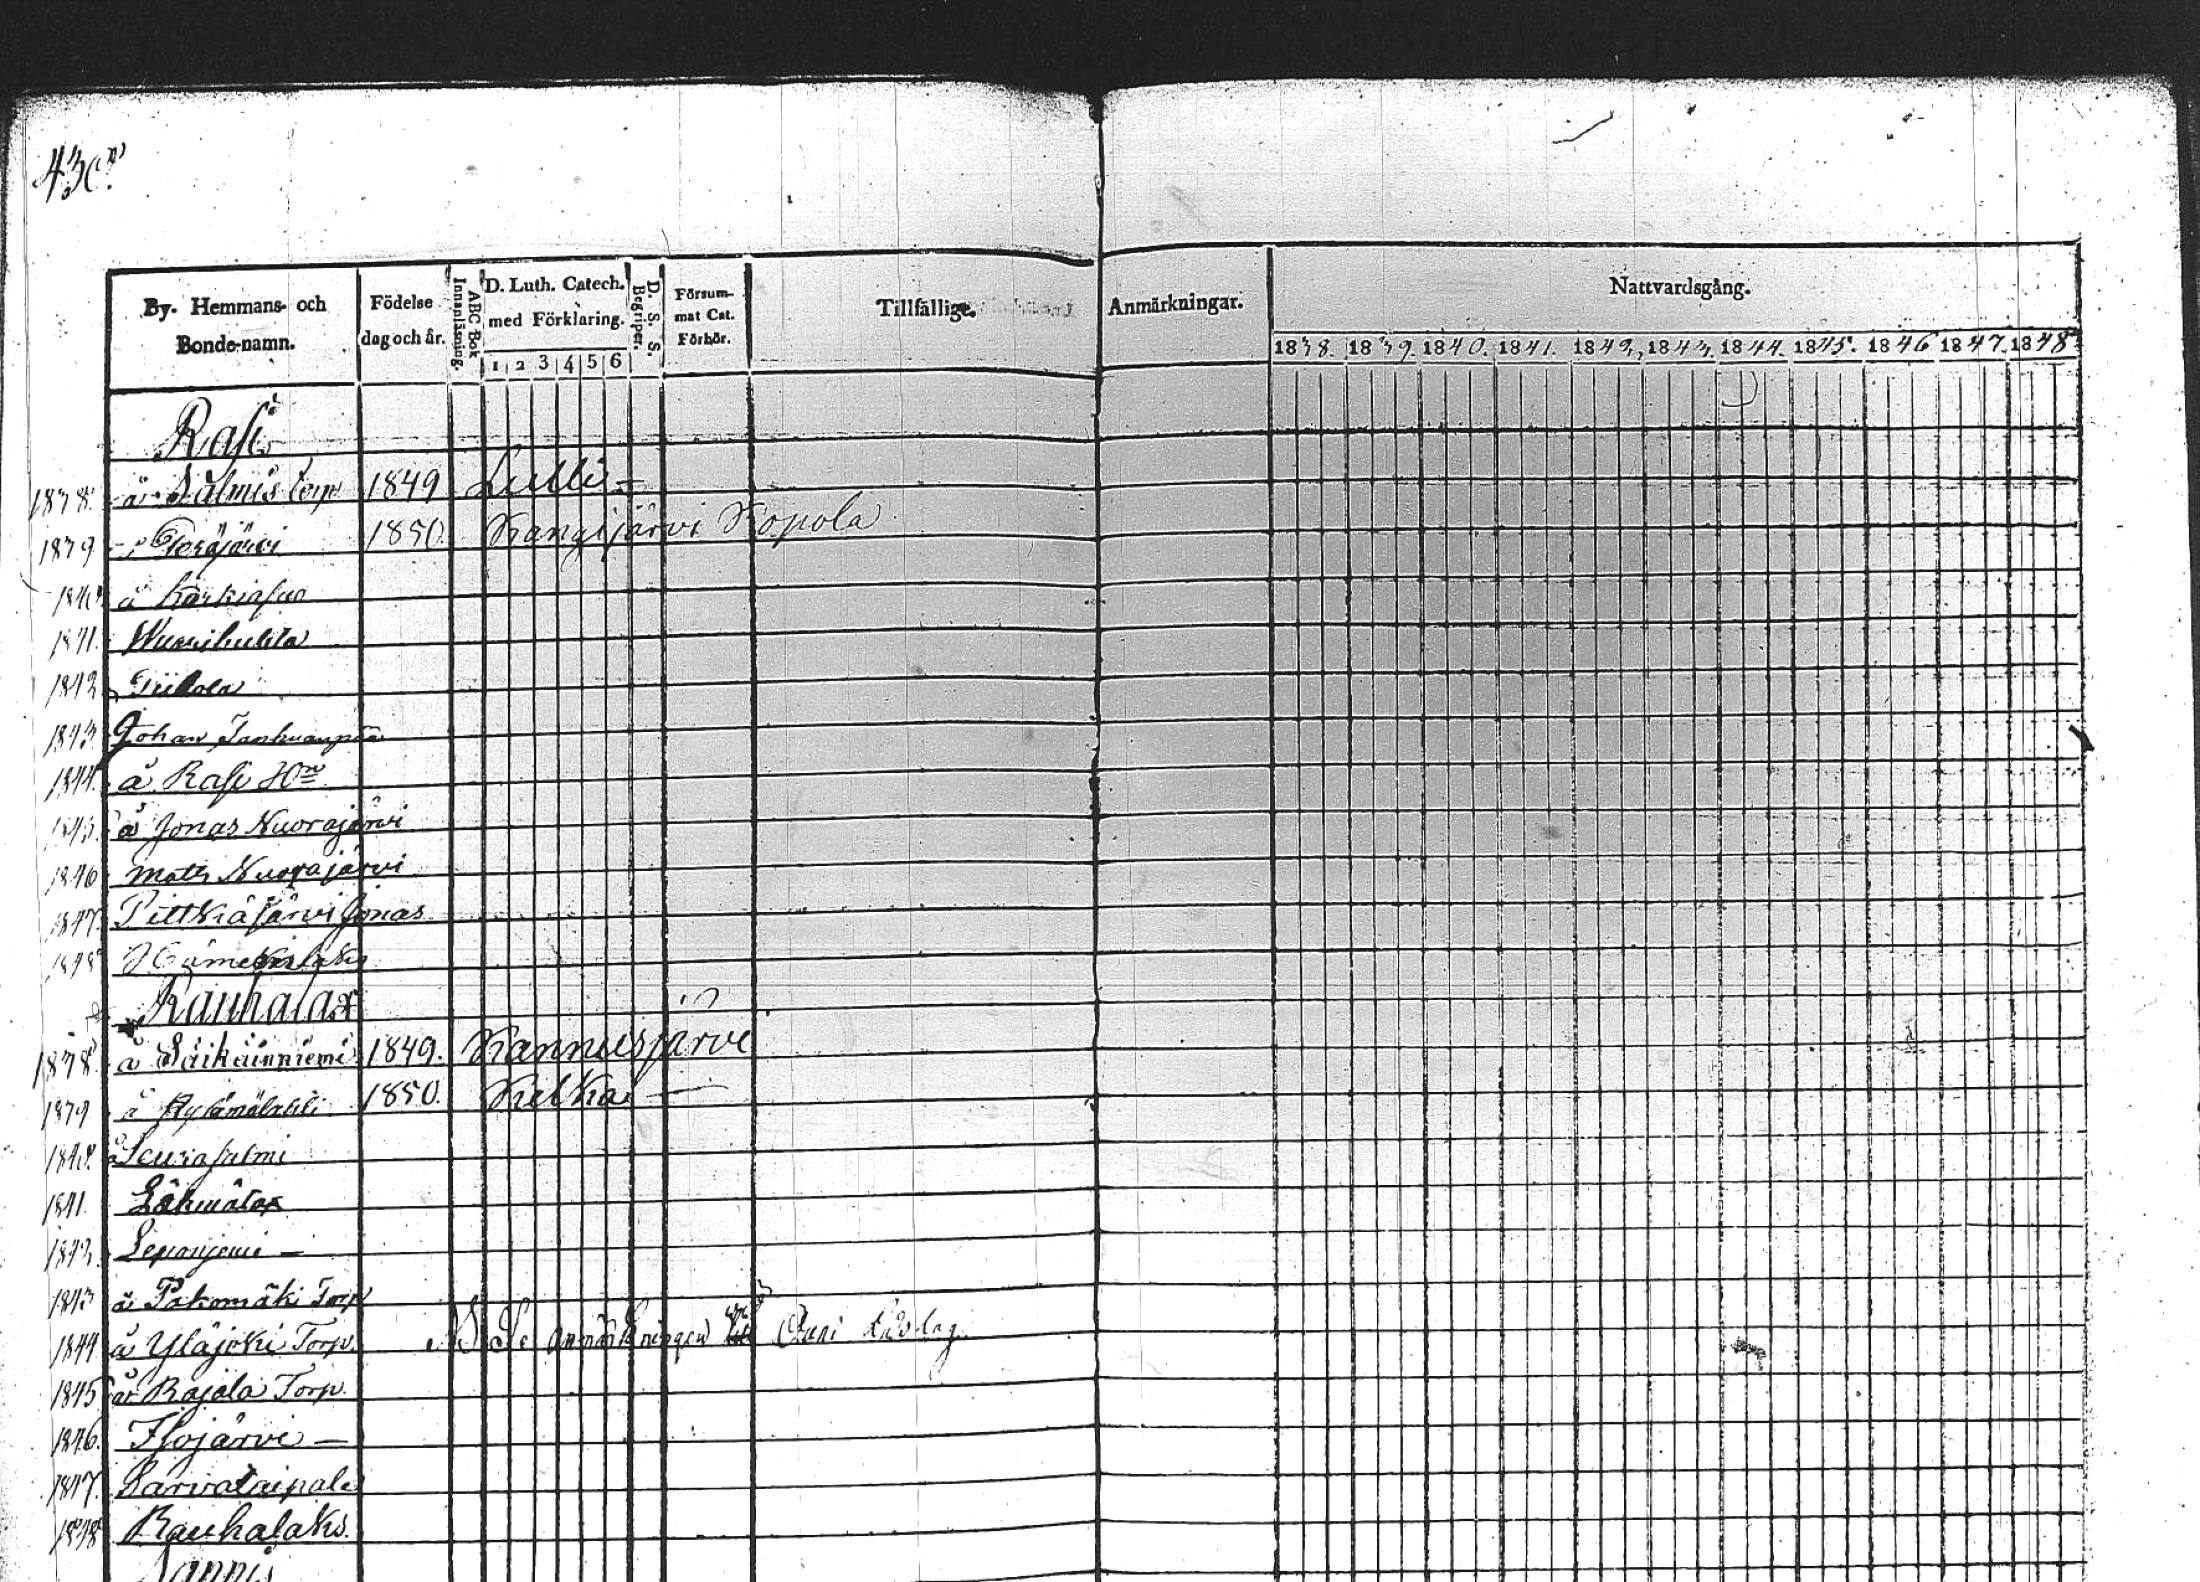 By- Hemmans- och Bonde-namn.
Födelse dag och år.
ABC Bok Innanläsning.
D. Luth. Catech. med Förklaring.
1 2 3 4 5 6
D. S. S. Begriper.
Försum- mat Cat. Förhör.
Tillfällige.
Anmärkningar.
Nattvardsgång.
1838. 1839. 1840. 1841. 1842. 1843. 1844. 1845. 1846 1847. 1848
Rasi
1838. å Salmis torp 1849 Lulli
1839 Peräjärvi 1850. Kangisjärvi Kopola
1840 å Karkiasuo
1841. Wuorihuhta
1842 Tiikola
1843. Johan
1844. å Rasi
1845. å Jonas Nuorajärvi
1846 Math Nuorajärvi
1847. Pittkäjärvi Jonas
1848
Rauhalax
1838. å Säikäinniemi 1849. Kannusjärvi
1839 å 1850. Kelka
1840. å Seurasalmi
1841. Lähmälax
1842. Leponjemi
1843 å Pakomäki Torp
1844 å Yläjoki Torp. NB Se anmärkningen
1845 å Rajala Torp.
1846. Isojärvi
1847. Sarvataipale
1848 Rauhalaks.